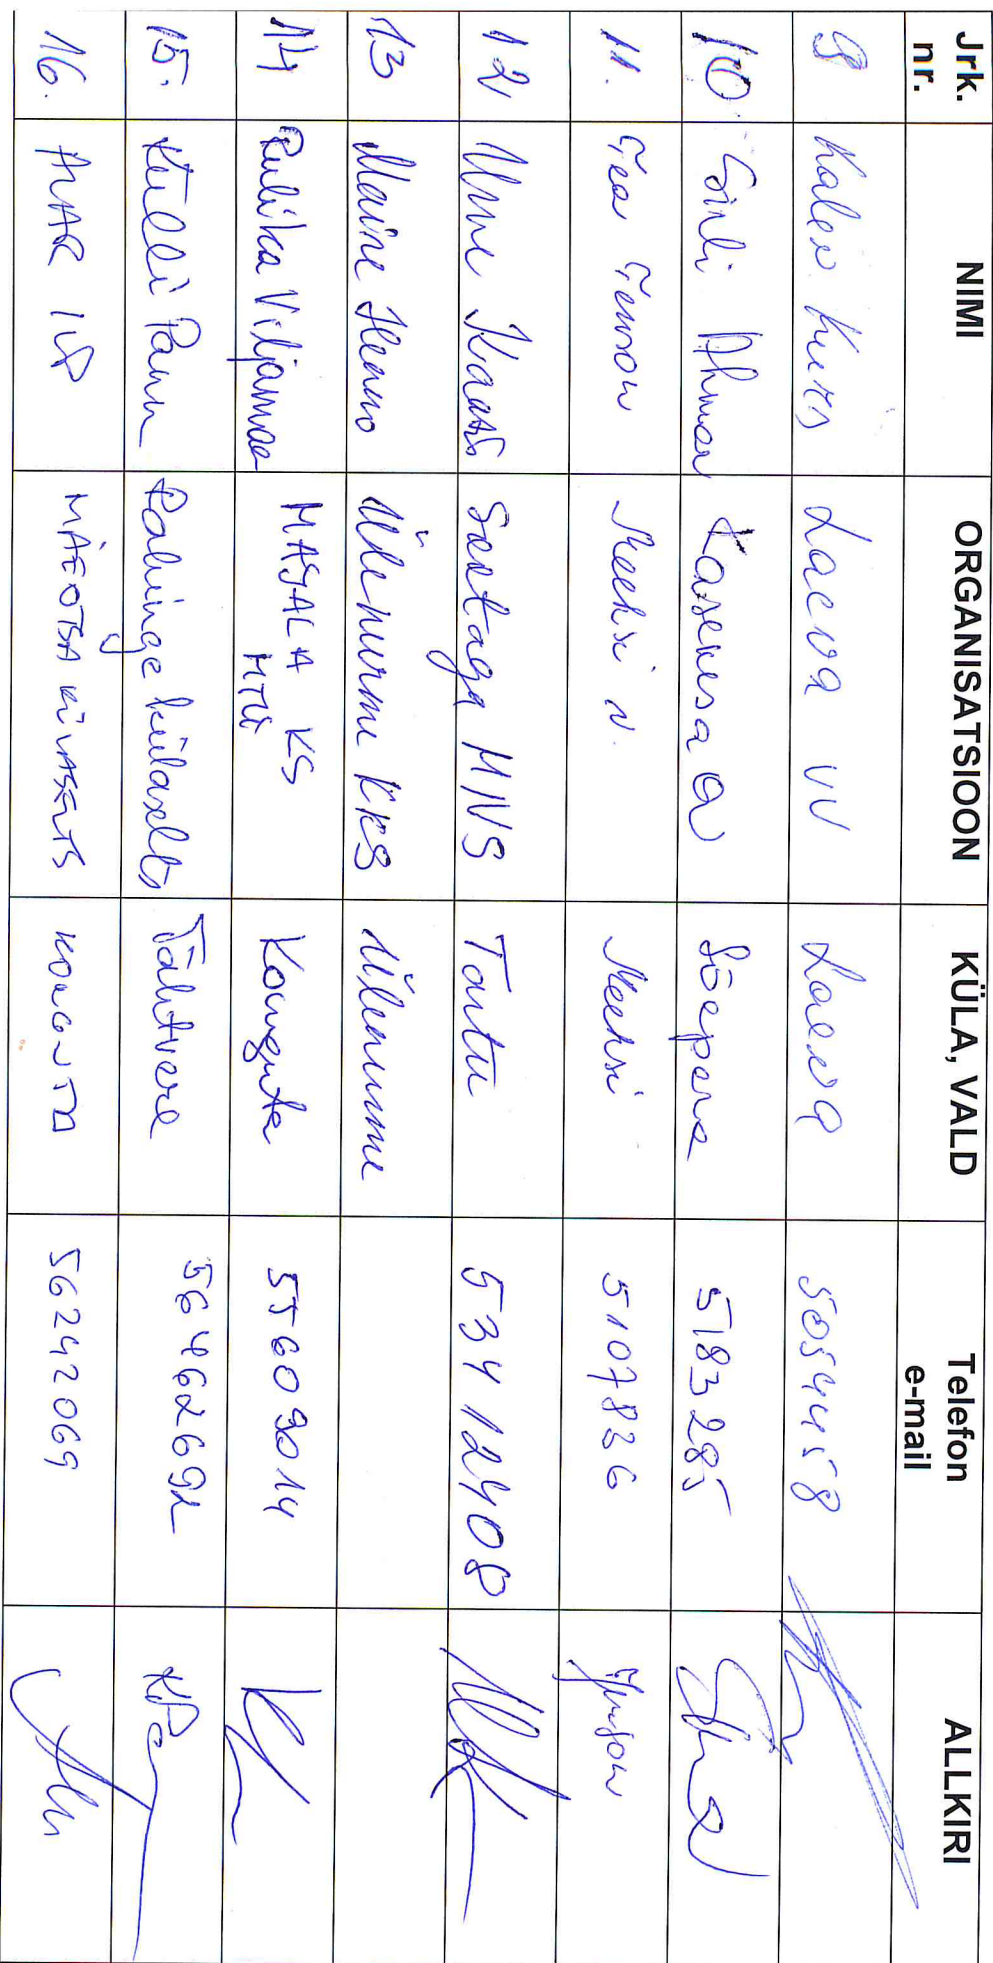 Jrk. nr. NIMI ORGANISATSIOON KÜLA, VALD Telefon e-mail ALLKIRI
9 Kalev Kurs Laeva VV Laeva 5054458
10. Sirli Ahman 5183285
11. Tea Tenson Meeksi v. Meeksi 5107836
12 Urve Kaasik MNS Tartu 53412408
13 Maire Henno Ülenurme KKS Ülenurme
14 Viljamaa MAJALA KS MTÜ Konguta 55609014
15. Külli Pann Rahinge külaselts Tähtvere 56462692
16. AIVAR MÄEOTSA KONGUTA 56242069